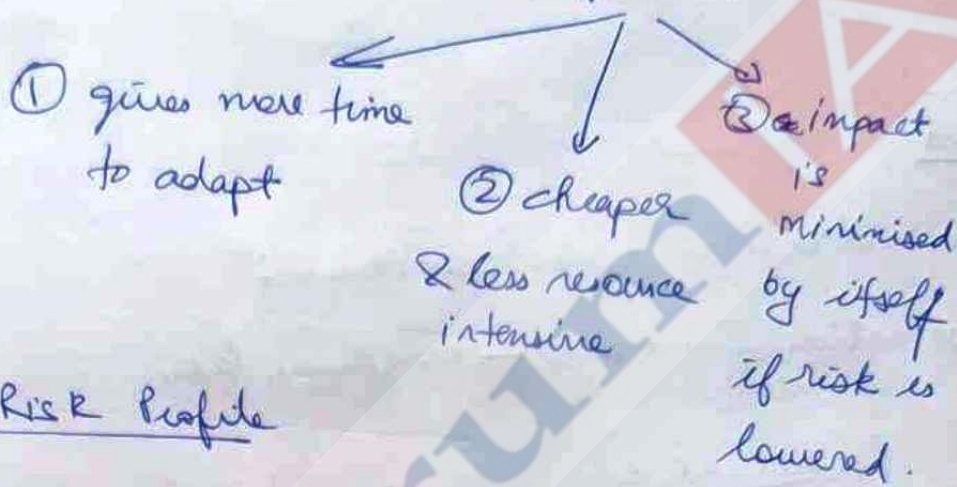 ① gives more time
to adapt
② cheaper
& less resource
intensive
③ impact
is
minimised
by itself
if risk is
lowered.
Risk Profile
um
A